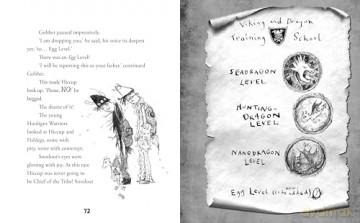 Gobber paused impressively.
'I am dropping you,' he said, his voice its deepest
yet, 'to... Egg Level.'
There was an Egg Level!
'I will be reporting this to your father,' continued
Gobber.
This made Hiccup
look up. 'Please, NO!' he
begged.
The shame of it!
The young
Hooligan Warriors
looked at Hiccup and
Fishlegs, some with
pity, some with contempt.
Snotlout's eyes were
glowing with joy. At this rate
Hiccup was never going to
be Chief of the Tribe! Snotlout
72
Viking and Dragon
Training School
SEADRAGON
LEVEL
HUNTING-
DRAGON
LEVEL
NANODRAGON
LEVEL
Egg Level